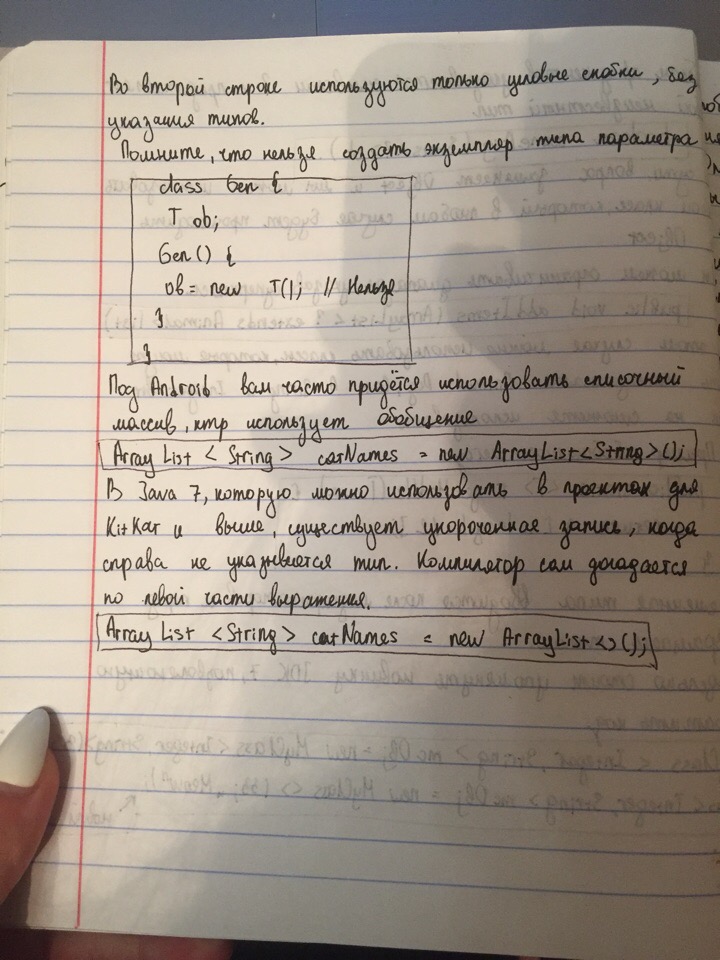 Во второй строке используются только угловые скобки, без
указания типов.
Помните, что нельзя создать экземпляр типа параметра
class Gen {
T ob;
Gen() {
ob = new T(); // Нельзя
}
}
Под Android вам часто придётся использовать списочный
массив, ктр использует обобщение
ArrayList <String> catNames = new ArrayList<String>();
В Java 7, которую можно использовать в проектах для
KitKat и выше, существует укороченная запись, когда
справа не указывается тип. Компилятор сам догадается
по левой части выражения.
ArrayList <String> catNames = new ArrayList<>();